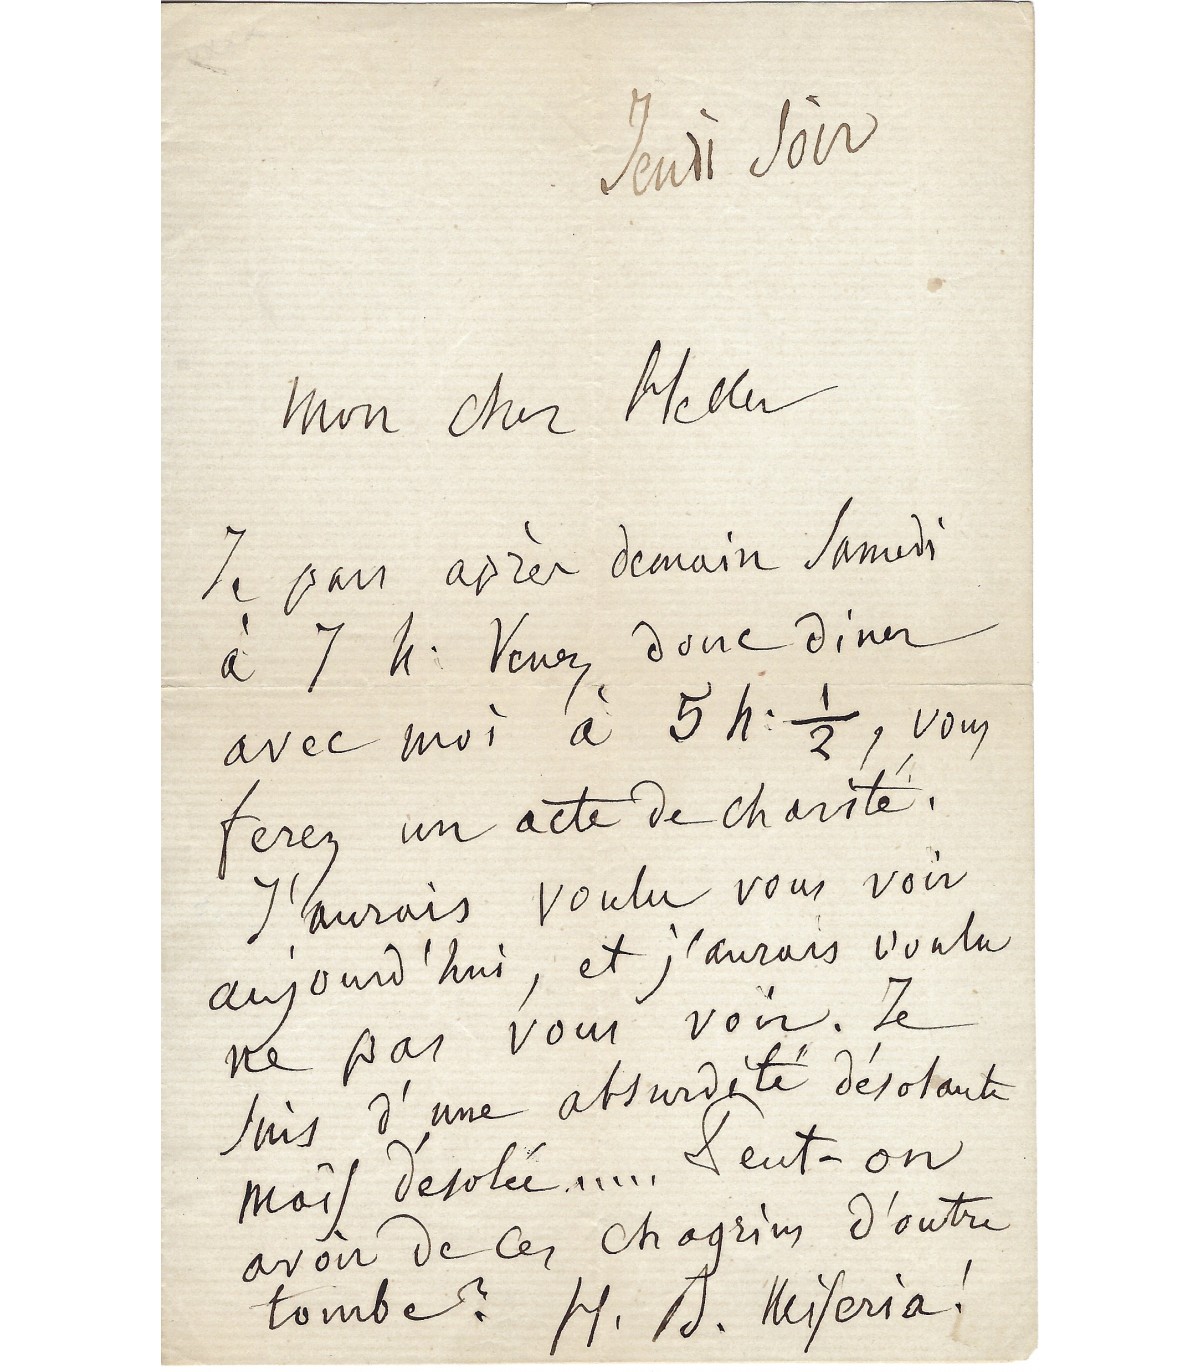 Jeudi soir
Mon cher Heller
Je pars après demain Samedi
à 7 h. Venez donc diner
avec moi à 5 h. 1/2, vous
ferez un acte de charité.
J'aurais voulu vous voir
aujourd'hui, et j'aurais voulu
ne pas vous voir. Je
suis d'une absurdité désolante
mais désolée..... Peut-on
avoir de ces chagrins d'outre
tombe? H. B. Miseria!